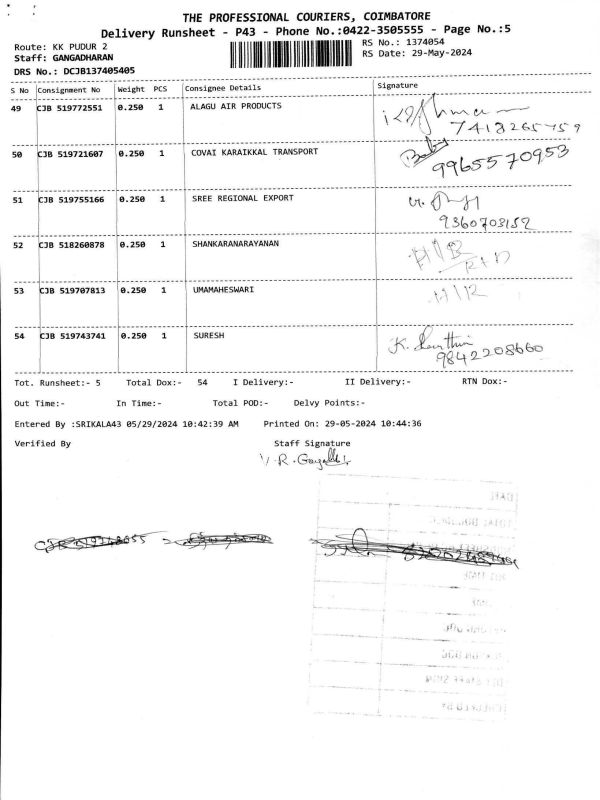 THE PROFESSIONAL COURIERS, COIMBATORE
Delivery Runsheet - P43 - Phone No.:0422-3505555 - Page No.:5
Route: KK PUDUR 2
RS No.: 1374054
Staff: GANGADHARAN
RS Date: 29-May-2024
DRS No.: DCJB137405405
S No Consignment No Weight PCS Consignee Details Signature
49 CJB 519772551 0.250 1 ALAGU AIR PRODUCTS
7418265759
50 CJB 519721607 0.250 1 COVAI KARAIKKAL TRANSPORT
9965570953
51 CJB 519755166 0.250 1 SREE REGIONAL EXPORT
9360703152
52 CJB 518260878 0.250 1 SHANKARANARAYANAN
53 CJB 519707813 0.250 1 UMAMAHESWARI
54 CJB 519743741 0.250 1 SURESH
9842208660
Tot. Runsheet:- 5 Total Dox:- 54 I Delivery:- II Delivery:- RTN Dox:-
Out Time:- In Time:- Total POD:- Delvy Points:-
Entered By :SRIKALA43 05/29/2024 10:42:39 AM Printed On: 29-05-2024 10:44:36
Verified By Staff Signature